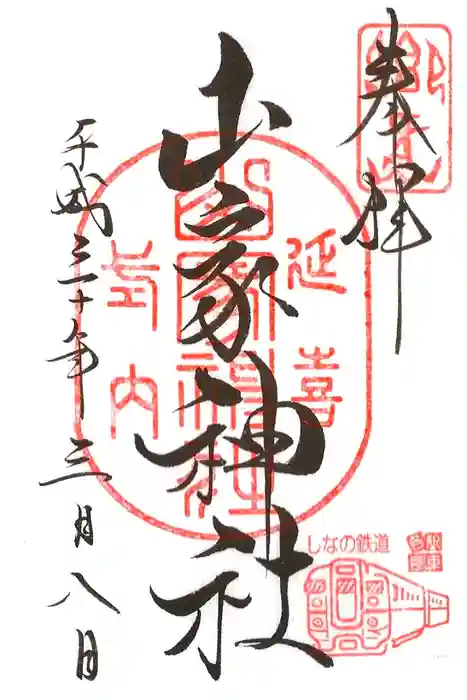 奉拝
山家神社
平成三十年三月八日
延喜
式内
山家神社
しなの鉄道